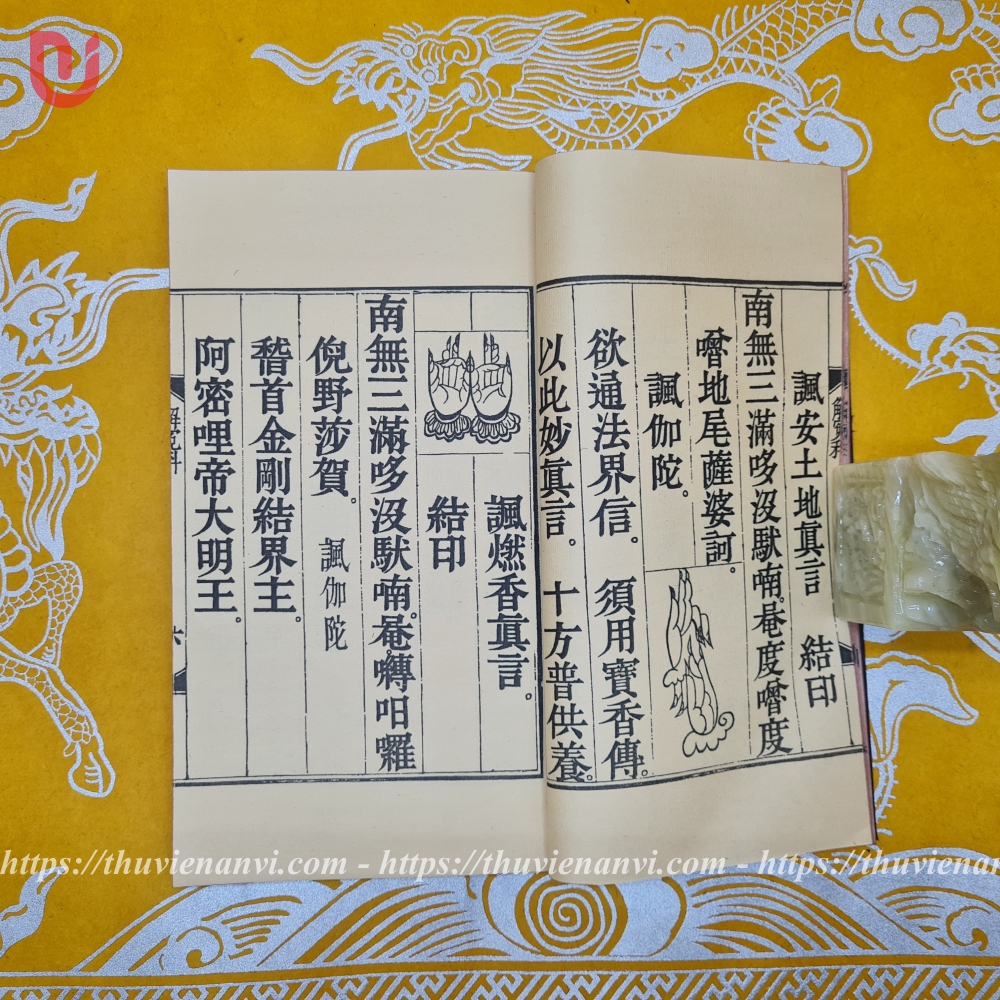 諷安土地眞言　結印
南無三滿哆沒馱喃。唵度嚕度
嚕地尾薩婆訶。
諷伽陀。
欲通法界信。　須用寶香傳。
以此妙眞言。　十方普供養。
諷燃香眞言。
結印
南無三滿哆沒馱喃。唵囀呬囉
倪野莎賀。　諷伽陀
稽首金剛結界主。
阿密哩帝大明王。
六
https://thuvienanvi.com - https://thuvienanvi.com - https://thuvienan